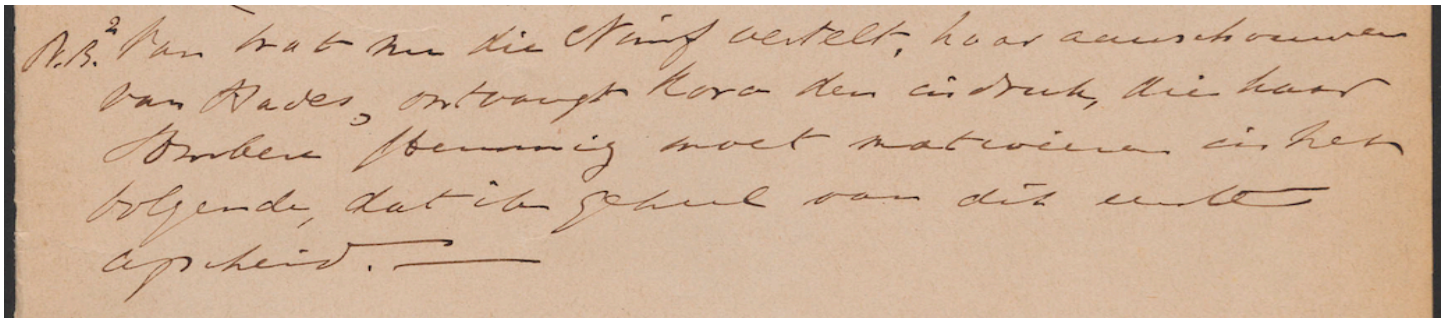 N.B.² Van wat nu die Nimf vertelt, haar aanschouwen
van Hades, ontvangt Kora den indruk, die haar
sombere stemming moet motiveeren in het
volgende, dat ik geheel van dit eerste
afscheid. —